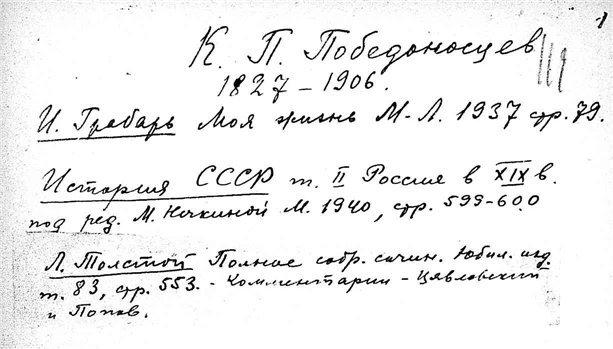 К. П. Победоносцев
1827 – 1906.
И. Грабарь Моя жизнь М-Л. 1937 стр. 79.
История СССР т. II Россия в XIX в.
под ред. М. Нечкиной М. 1940, стр. 599-600
Л. Толстой Полное собр. сочин. Юбил. изд.
т. 83, стр. 553. - Комментарии - Цявловский
и Попов.